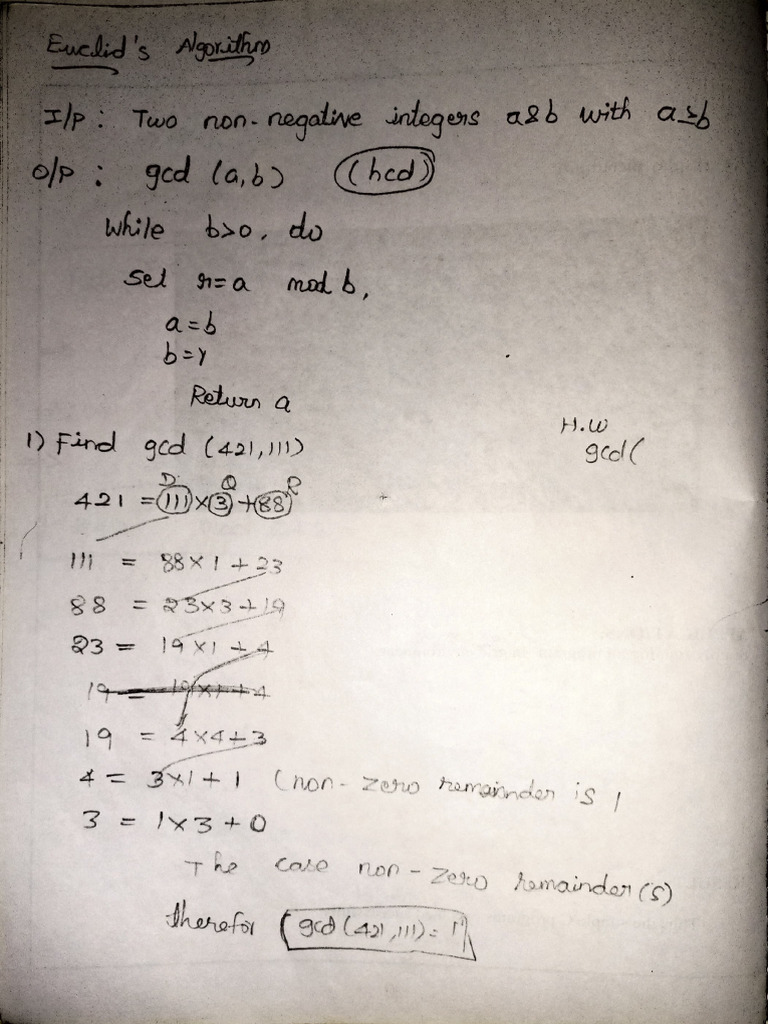 Euclid's Algorithm
I/p: Two non-negative integers a&b with a≥b
O/p: gcd (a,b) (hcd)
While b>0, do
Set r=a mod b,
a=b
b=r
Return a
H.W
1) Find gcd (421,111)
gcd(
D Q R
421 = 111×3+88
111 = 88×1+23
88 = 23×3+19
23 = 19×1+4
19 = 19×1+4
19 = 4×4+3
4 = 3×1+1 (non-zero remainder is 1
3 = 1×3+0
The case non-zero remainder(s)
therefor gcd(421,111)=1